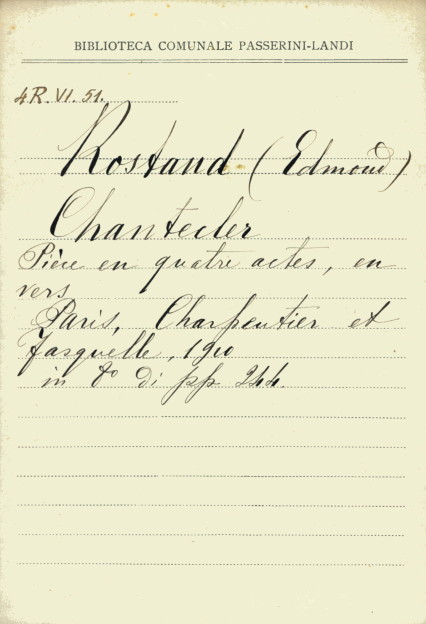 BIBLIOTECA COMUNALE PASSERINI-LANDI
4R.VI.51.
Rostand (Edmond)
Chantecler
Pièce en quatre actes, en
vers
Paris, Charpentier et
Fasquelle, 1910
in 8º di pp 244.